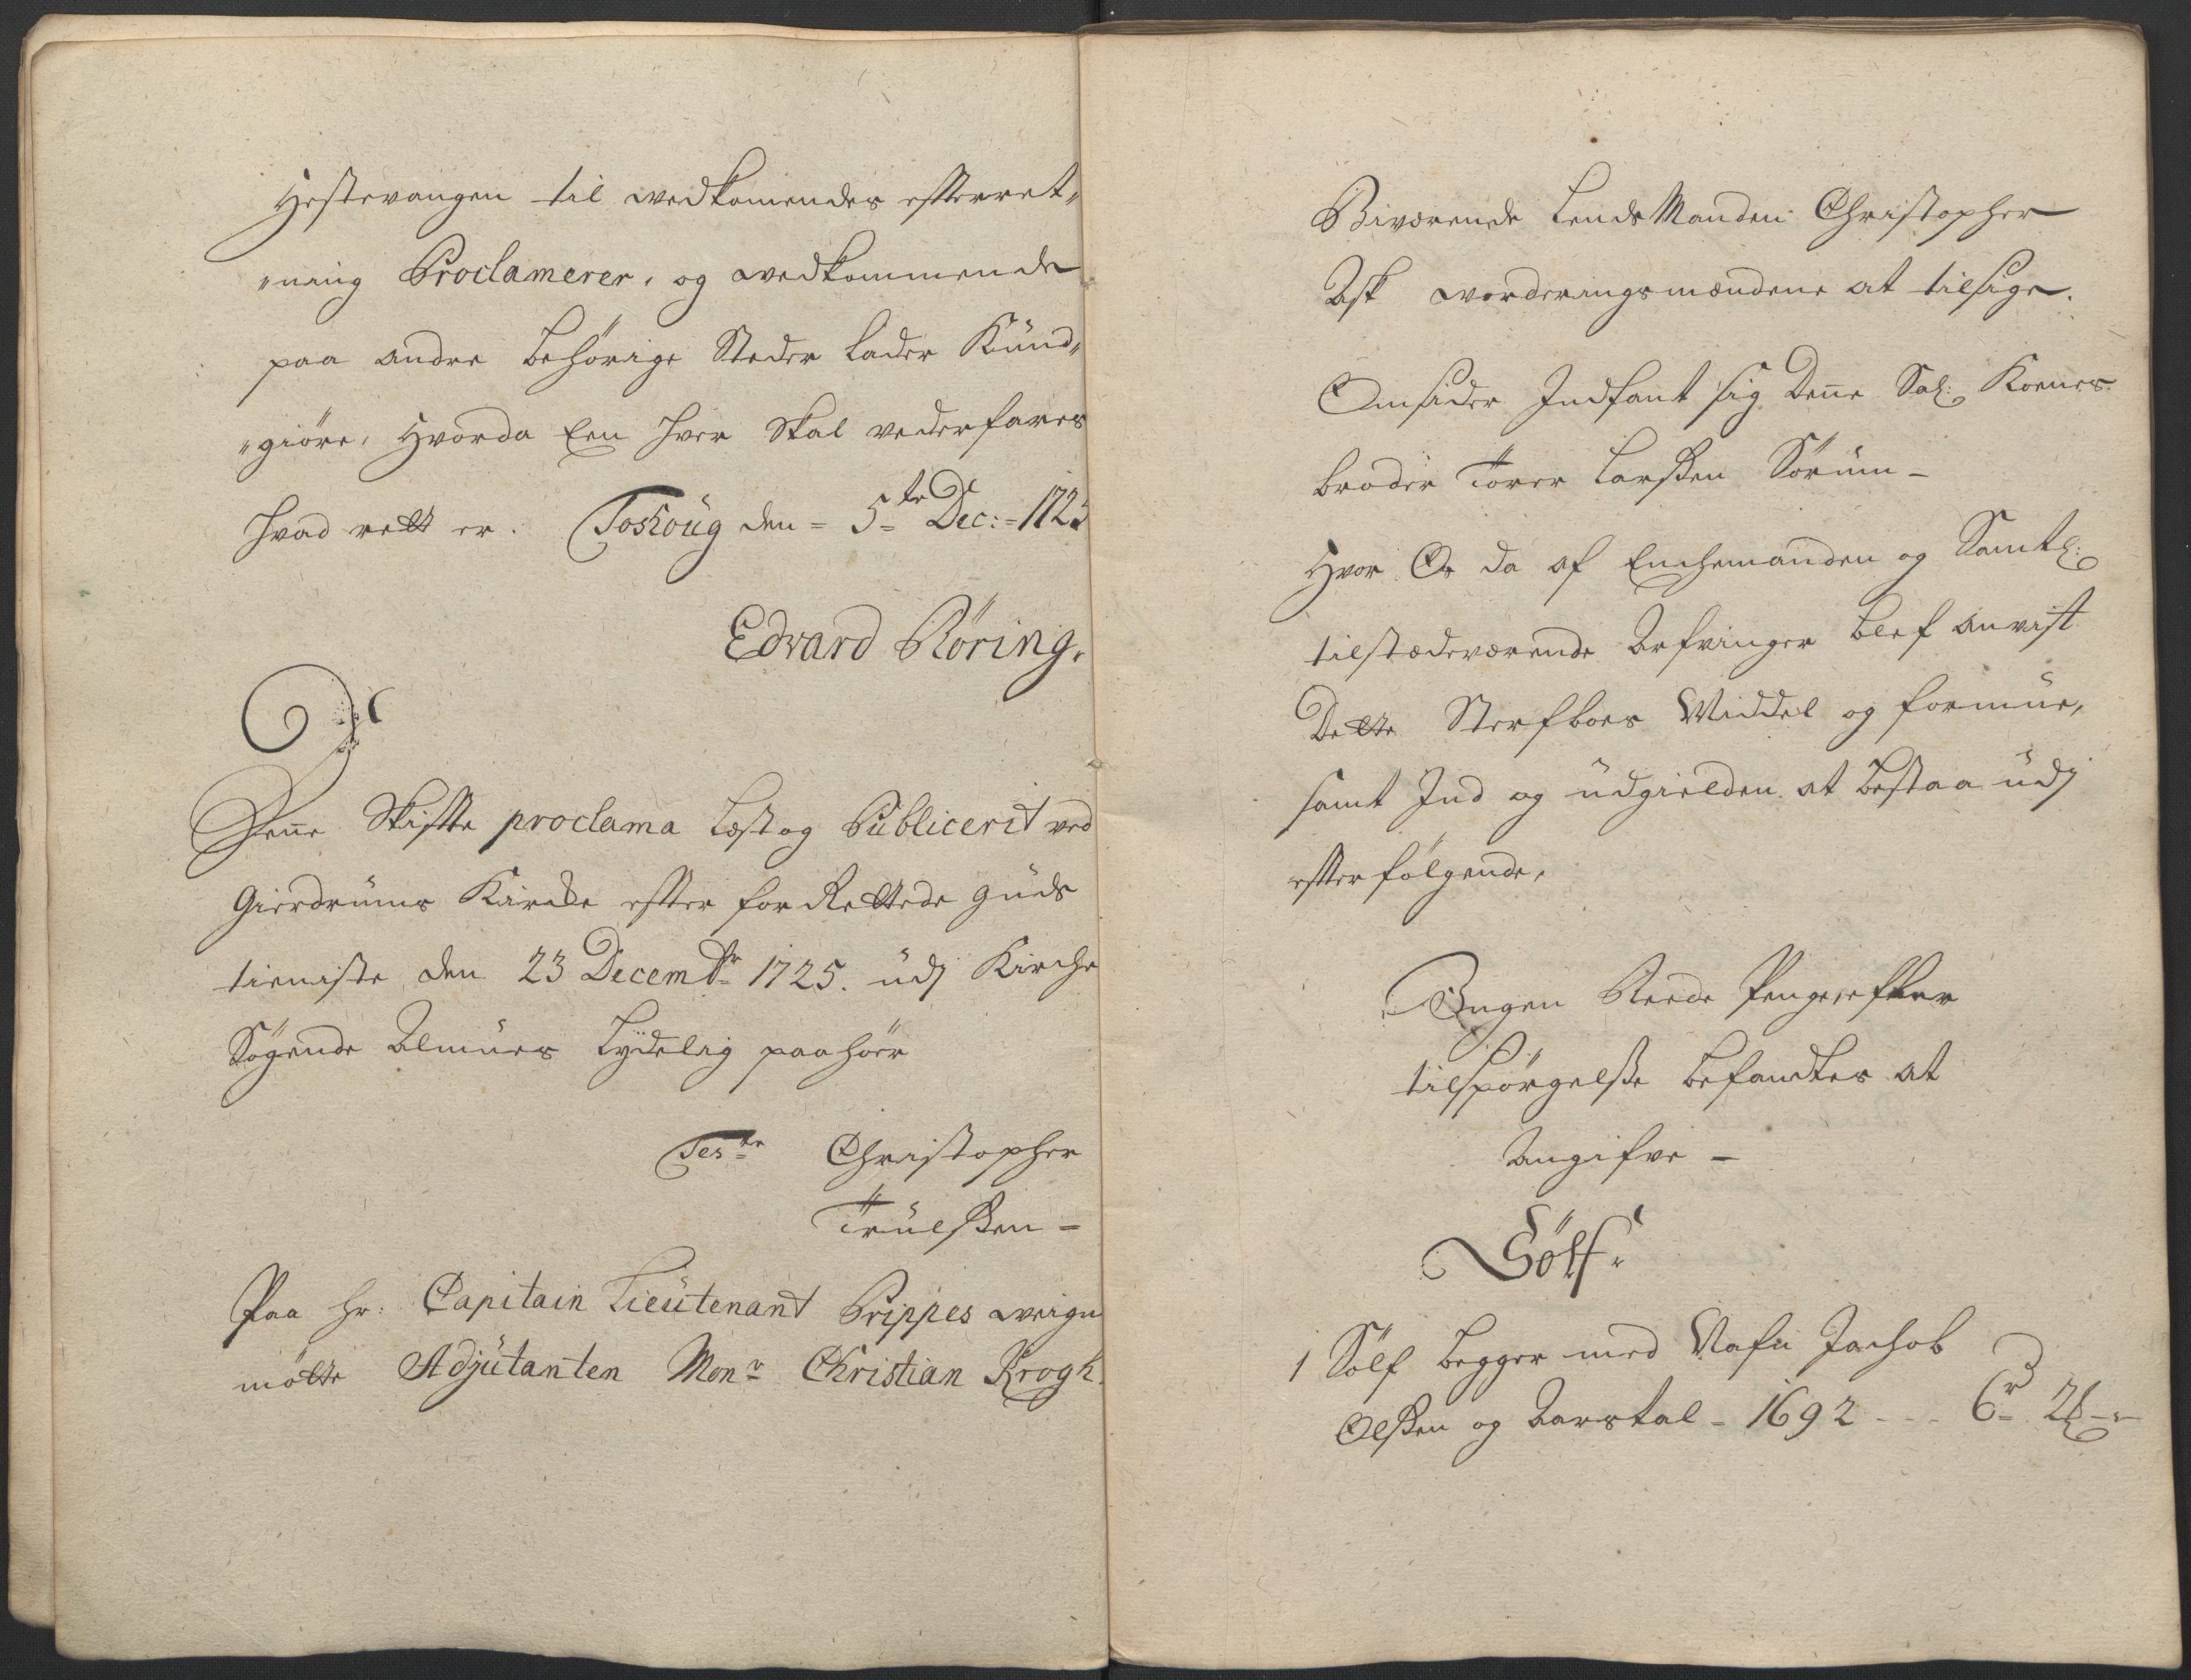 Hestevangen til wedkomendes efterret„
„ning Proclamerer, og wedkommende
paa andre behörige Steder lader Künd„
„giöre, Hvorda Een hver Skal vederfares
hvad rett er. Toshoüg den = 5te Dec: = 1725
Edvard Röring.
Denne Skiftte proclama Læst og Publicerit ved
Gierdrüms Kircke efter forRettede Güds
tieniste den 23 Decembr 1725. üdj Kirche
Sögende Almües Lydelig paahör
Teste Christopher
Trülssen =
Paa hr: Capitain Lieütenant Grippes weigne
mötte Adjütanten Monr Christian Krogh.
Biværende LendsManden Christopher
Ask worderingsmændene at tilsige.
Omsider Indfant sig Denne Sal: Koenes
broder Torer Larssen Sörüm -
Hvor Os da af Enchemanden og Samtl:
tilstædeværende Arfvinger blef anvist
Dette Sterfboes Middel og formüe,
samt Ind og üdgielden at bestaa üdj
efterfölgende,
Engen Reede Penge efter
tilspörgelsse befandtes at
Angifve -
Sölf
1 Sölf begger med Nafn Jachob
Olssen og Aarstal - 1692 - - - 6 r 2